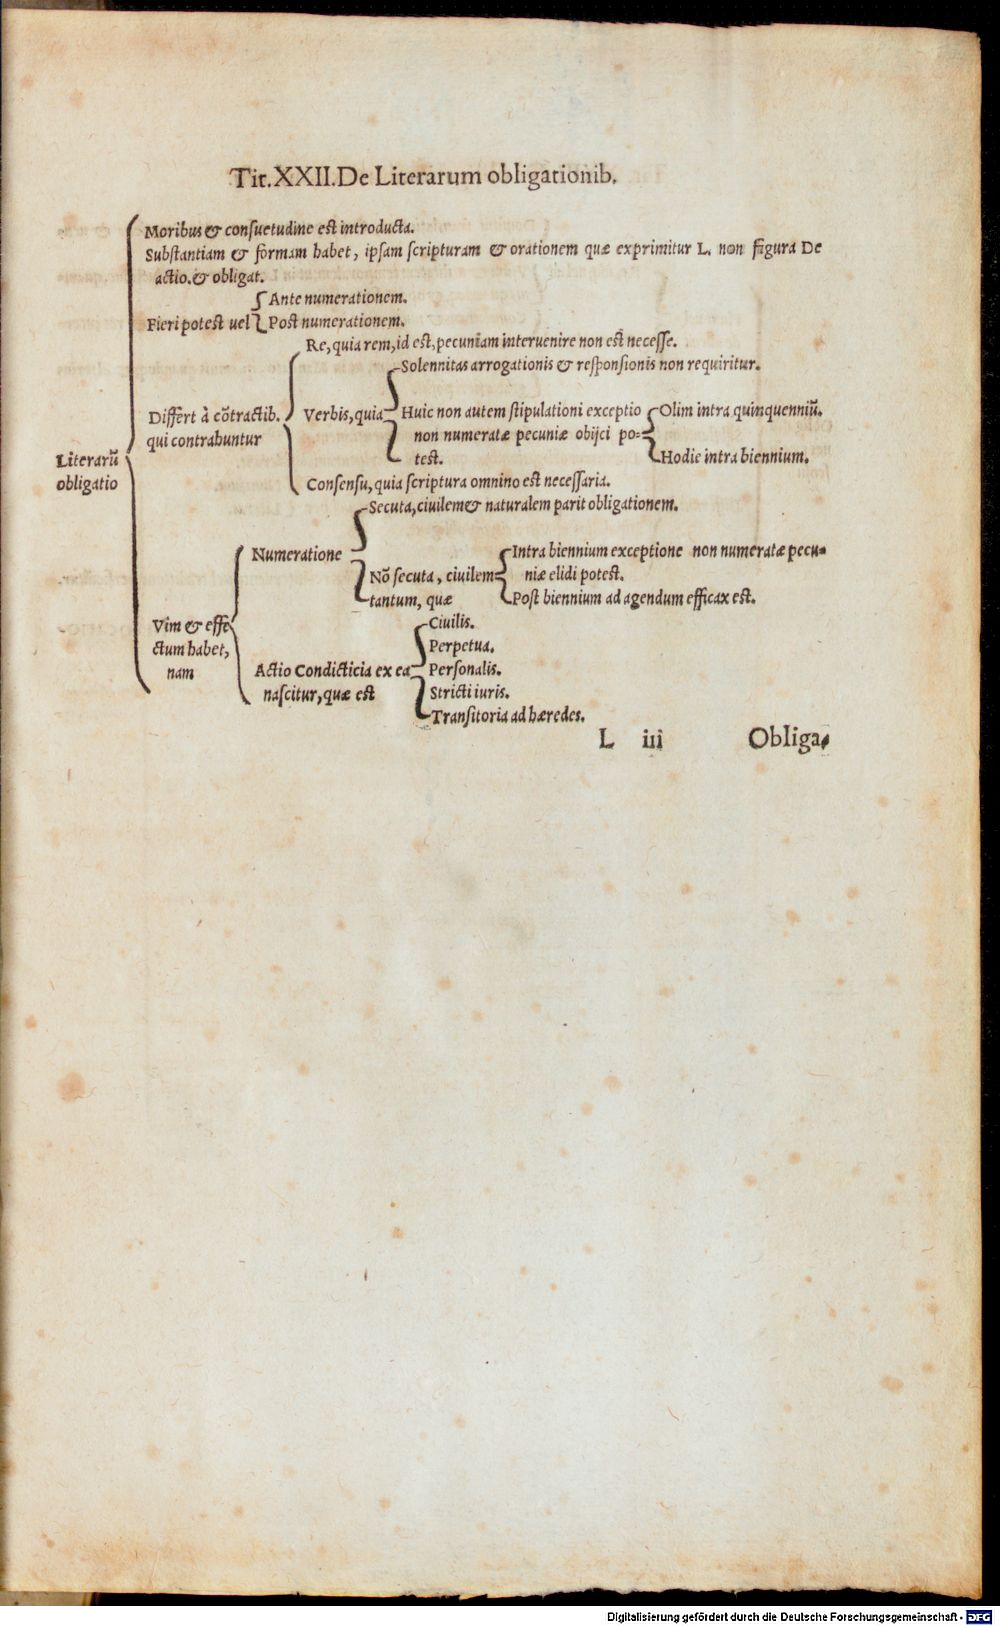 Tit.XXII.De Literarum obligationib.
Moribus & consuetudine est introducta.
Substantiam & formam habet, ipsam scripturam & orationem quæ exprimitur L. non figura De
actio.& obligat.
Ante numerationem.
Fieri potest uel Post numerationem.
Re, quia rem, id est, pecuniam interuenire non est necesse.
Solennitas arrogationis & responsionis non requiritur.
Differt à cōtractib. Verbis, quia Huic non autem stipulationi exceptio Olim intra quinquenniū.
qui contrahuntur non numeratæ pecuniæ obijci po=
Literarū test. Hodie intra biennium.
obligatio Consensu, quia scriptura omnino est necessaria.
Secuta, ciuilem & naturalem parit obligationem.
Numeratione Intra biennium exceptione non numeratæ pecu=
Nō secuta, ciuilem niæ elidi potest.
tantum, quæ Post biennium ad agendum efficax est.
Vim & effe Ciuilis.
ctum habet, Perpetua.
nam Actio Condicticia ex ea Personalis.
nascitur, quæ est Stricti iuris.
Transitoria ad hæredes.
L iii Obliga=
Digitalisierung gefördert durch die Deutsche Forschungsgemeinschaft - DFG